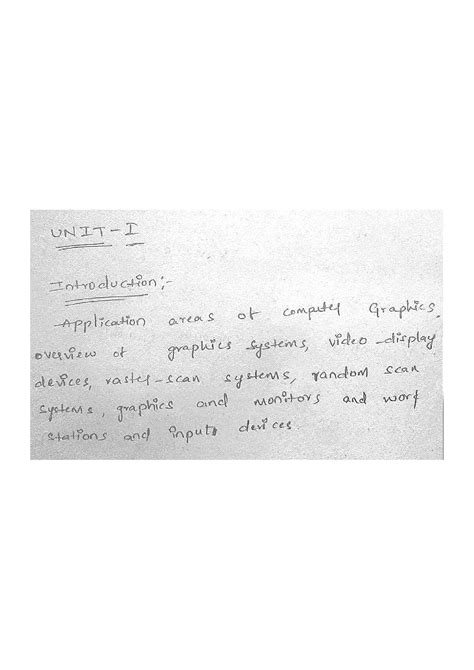 UNIT-I
Introduction:-
Application areas of computer Graphics,
overview of graphics systems, video-display
devices, raster-scan systems, random scan
systems, graphics and monitors and work
stations and input devices.